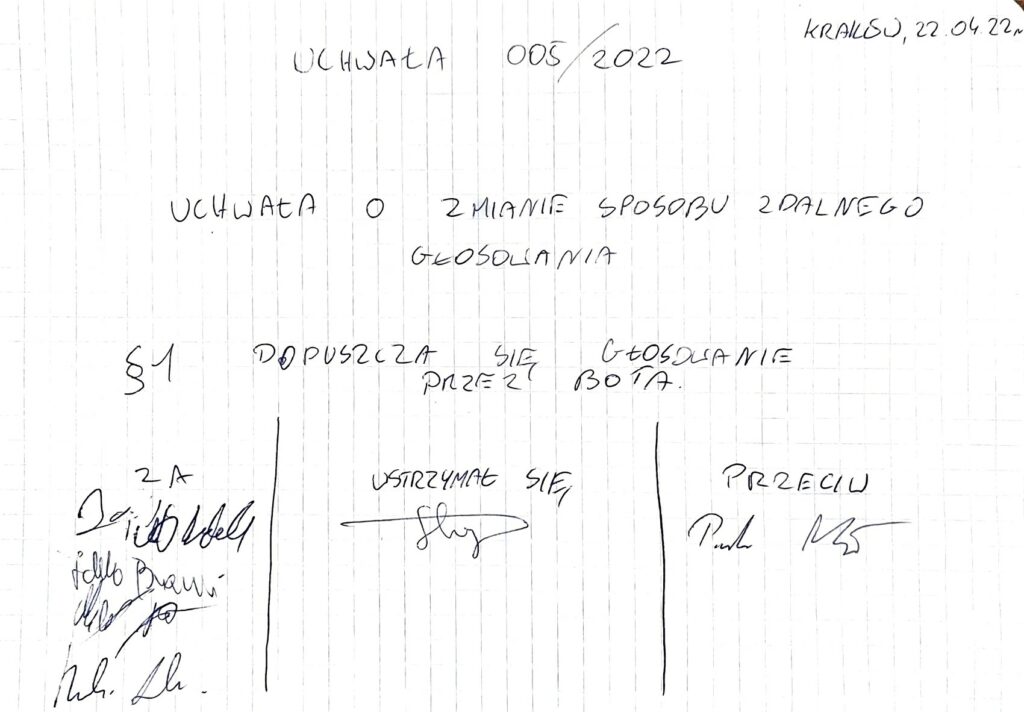 KRAKÓW, 22.04.22r
UCHWAŁA 005/2022
UCHWAŁA O ZMIANIE SPOSOBU ZDALNEGO
GŁOSOWANIA
§1 DOPUSZCZA SIĘ GŁOSOWANIE
PRZEZ BOTA.
ZA
WSTRZYMAŁ SIĘ
PRZECIW